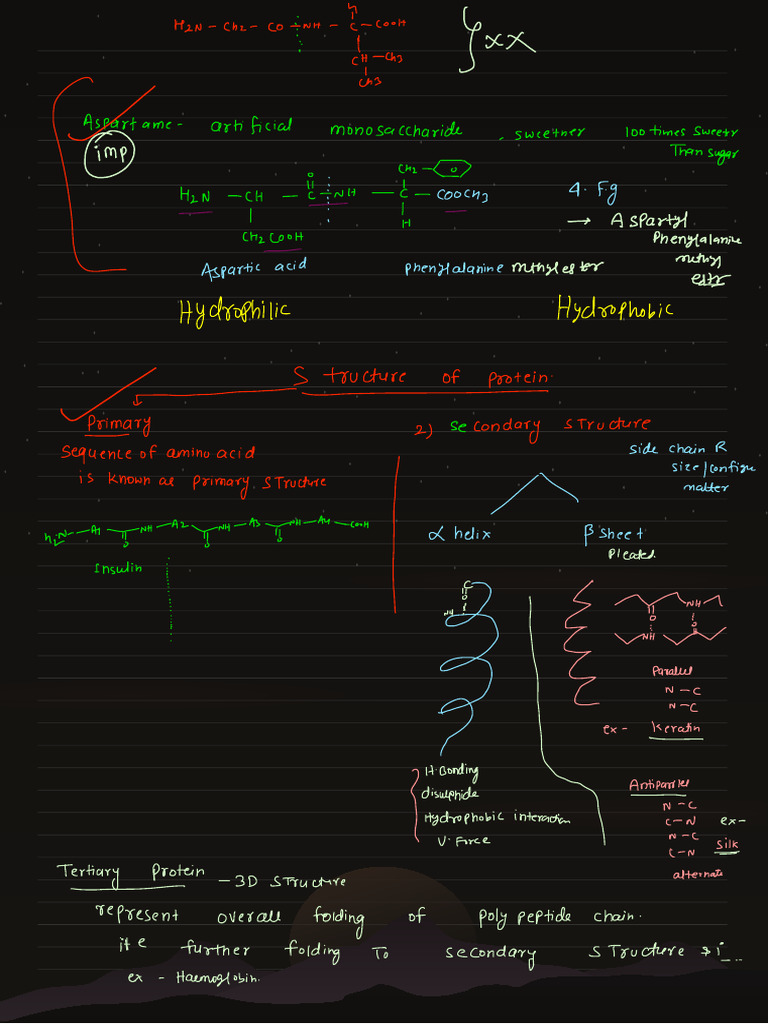 H
H2N - CH2 - CO - NH - C - COOH
CH - CH3
CH3
Aspartame - artificial monosaccharide . sweetner 100 times sweetr
Than sugar
imp
CH2
O
H2N - CH - C - NH - C - COOCH3
CH2COOH
H
4. F.g
→ Aspartyl
Phenylalanine
methyl
estr
Aspartic acid phenylalanine methylester
Hydrophilic Hydrophobic
Structure of protein
Primary
sequence of amino acid
is known as primary structure
H2N - A1 - NH - A2 - NH - A3 - NH - A4 - COOH
O O O
Insulin
2) secondary structure
side chain R
size/configu
matter
α helix β sheet
pleated
C
O
NH
NH
O O
NH
Parallel
N - C
N - C
ex - Keratin
H-Bonding
disulphide
Hydrophobic interaction
V. Force
Antiparllel
N - C
C - N
N - C
C - N
ex -
silk
alternate
Tertiary Protein - 3D structure
represent overall folding of polypeptide chain.
it e further folding to secondary structure
ex - Haemoglobin.